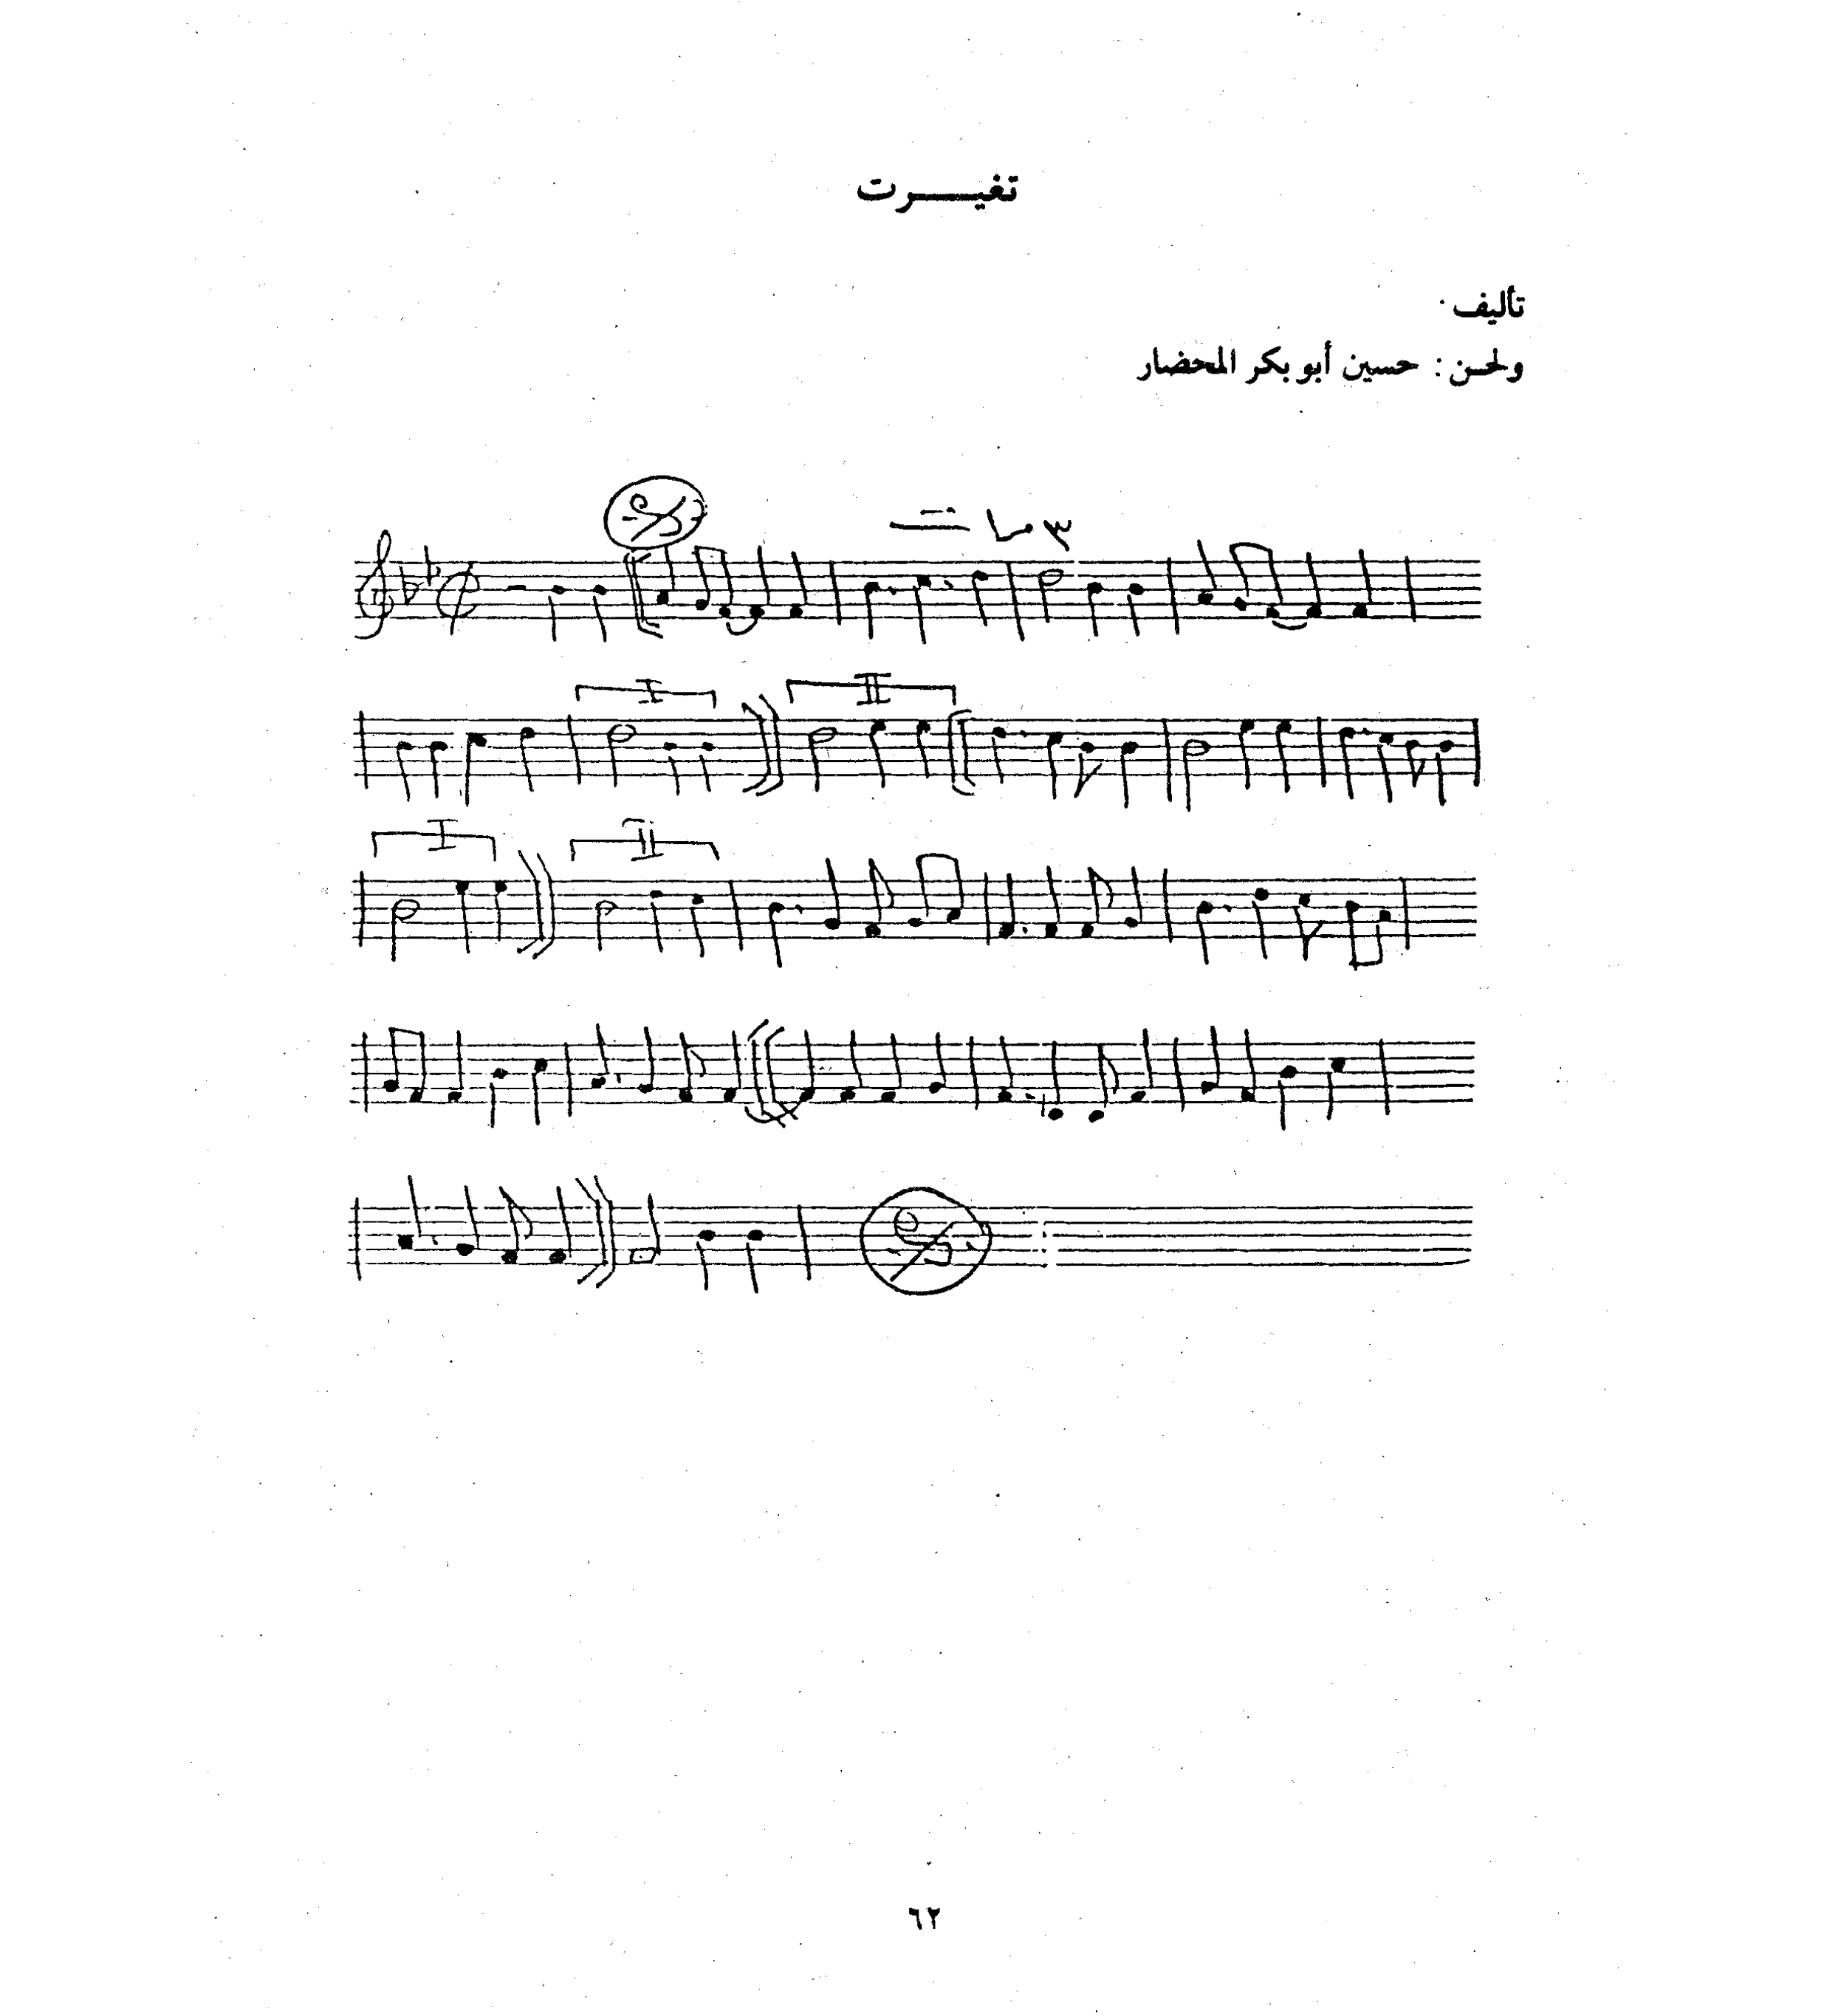 تغيــرت
تأليف
ولحسن : حسين أبو بكر المحضار
٣ مرات
I
II
I
II
٦٢